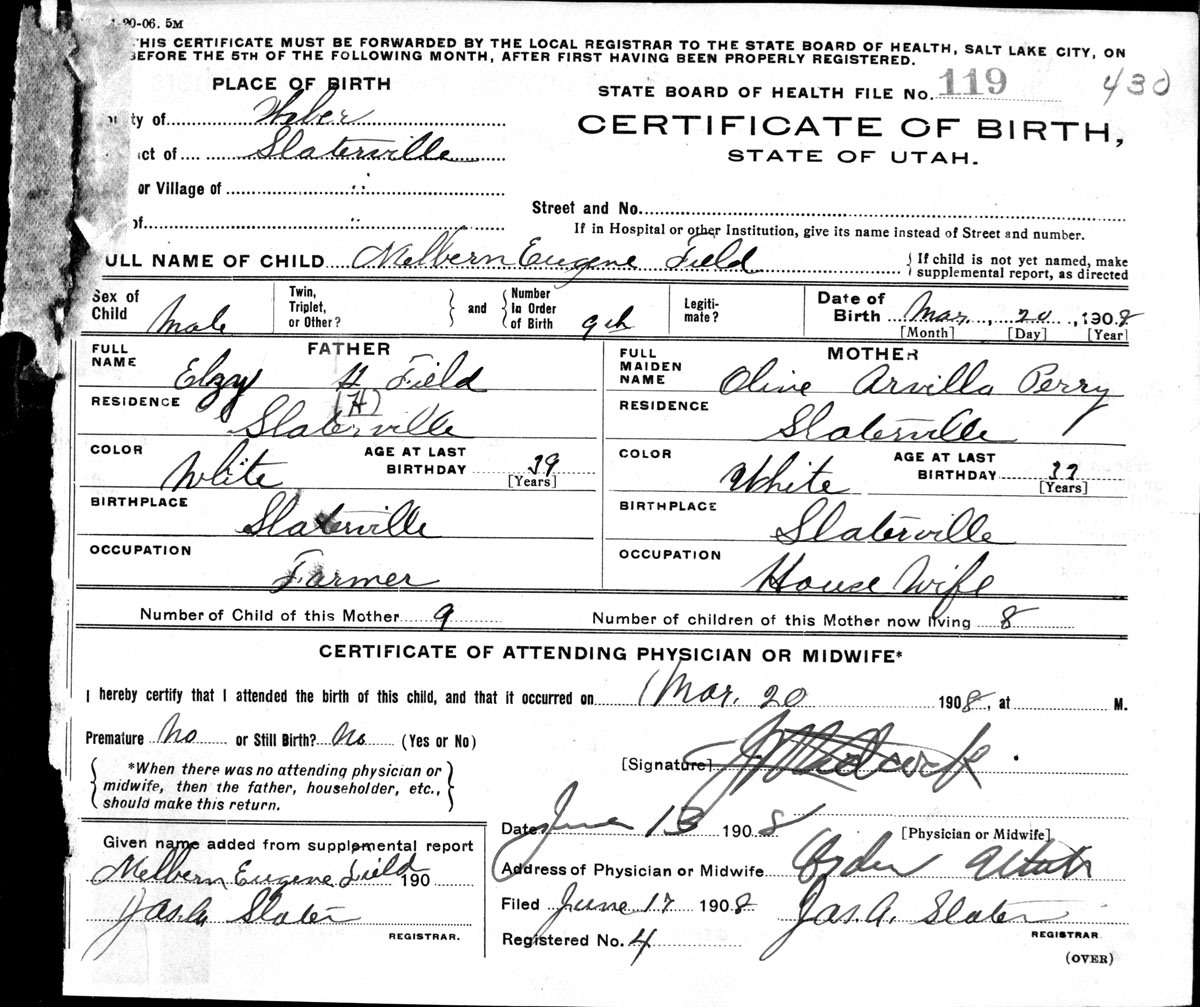 -20-06. 5M
THIS CERTIFICATE MUST BE FORWARDED BY THE LOCAL REGISTRAR TO THE STATE BOARD OF HEALTH, SALT LAKE CITY, ON
BEFORE THE 5TH OF THE FOLLOWING MONTH, AFTER FIRST HAVING BEEN PROPERLY REGISTERED.
PLACE OF BIRTH
STATE BOARD OF HEALTH FILE No. 119 430
ty of Weber
CERTIFICATE OF BIRTH,
ct of Slaterville
STATE OF UTAH.
or Village of
of
Street and No.
If in Hospital or other Institution, give its name instead of Street and number.
ULL NAME OF CHILD Melbern Eugene Field { If child is not yet named, make supplemental report, as directed
Sex of Child Male Twin, Triplet, or Other? } and { Number In Order of Birth 9th Legitimate? Date of Birth Mar. , 20 , 1908
[Month] [Day] [Year]
FATHER
FULL NAME Elzy H Field
(H)
RESIDENCE Slaterville
COLOR White AGE AT LAST BIRTHDAY 39
[Years]
BIRTHPLACE Slaterville
OCCUPATION Farmer
MOTHER
FULL MAIDEN NAME Olive Arvilla Perry
RESIDENCE Slaterville
COLOR White AGE AT LAST BIRTHDAY 37
[Years]
BIRTHPLACE Slaterville
OCCUPATION House Wife
Number of Child of this Mother 9 Number of children of this Mother now living 8
CERTIFICATE OF ATTENDING PHYSICIAN OR MIDWIFE*
I hereby certify that I attended the birth of this child, and that it occurred on Mar. 20 1908, at M.
Premature No or Still Birth? No (Yes or No)
[Signature]
{ *When there was no attending physician or
midwife, then the father, householder, etc.,
should make this return. }
Date June 13 1908 [Physician or Midwife]
Address of Physician or Midwife Ogden Utah
Filed June 17 1908 Jas. A. Slater
REGISTRAR
Registered No. 4
(OVER)
Given name added from supplemental report
Melbern Eugene Field 190
Jas A Slater
REGISTRAR.